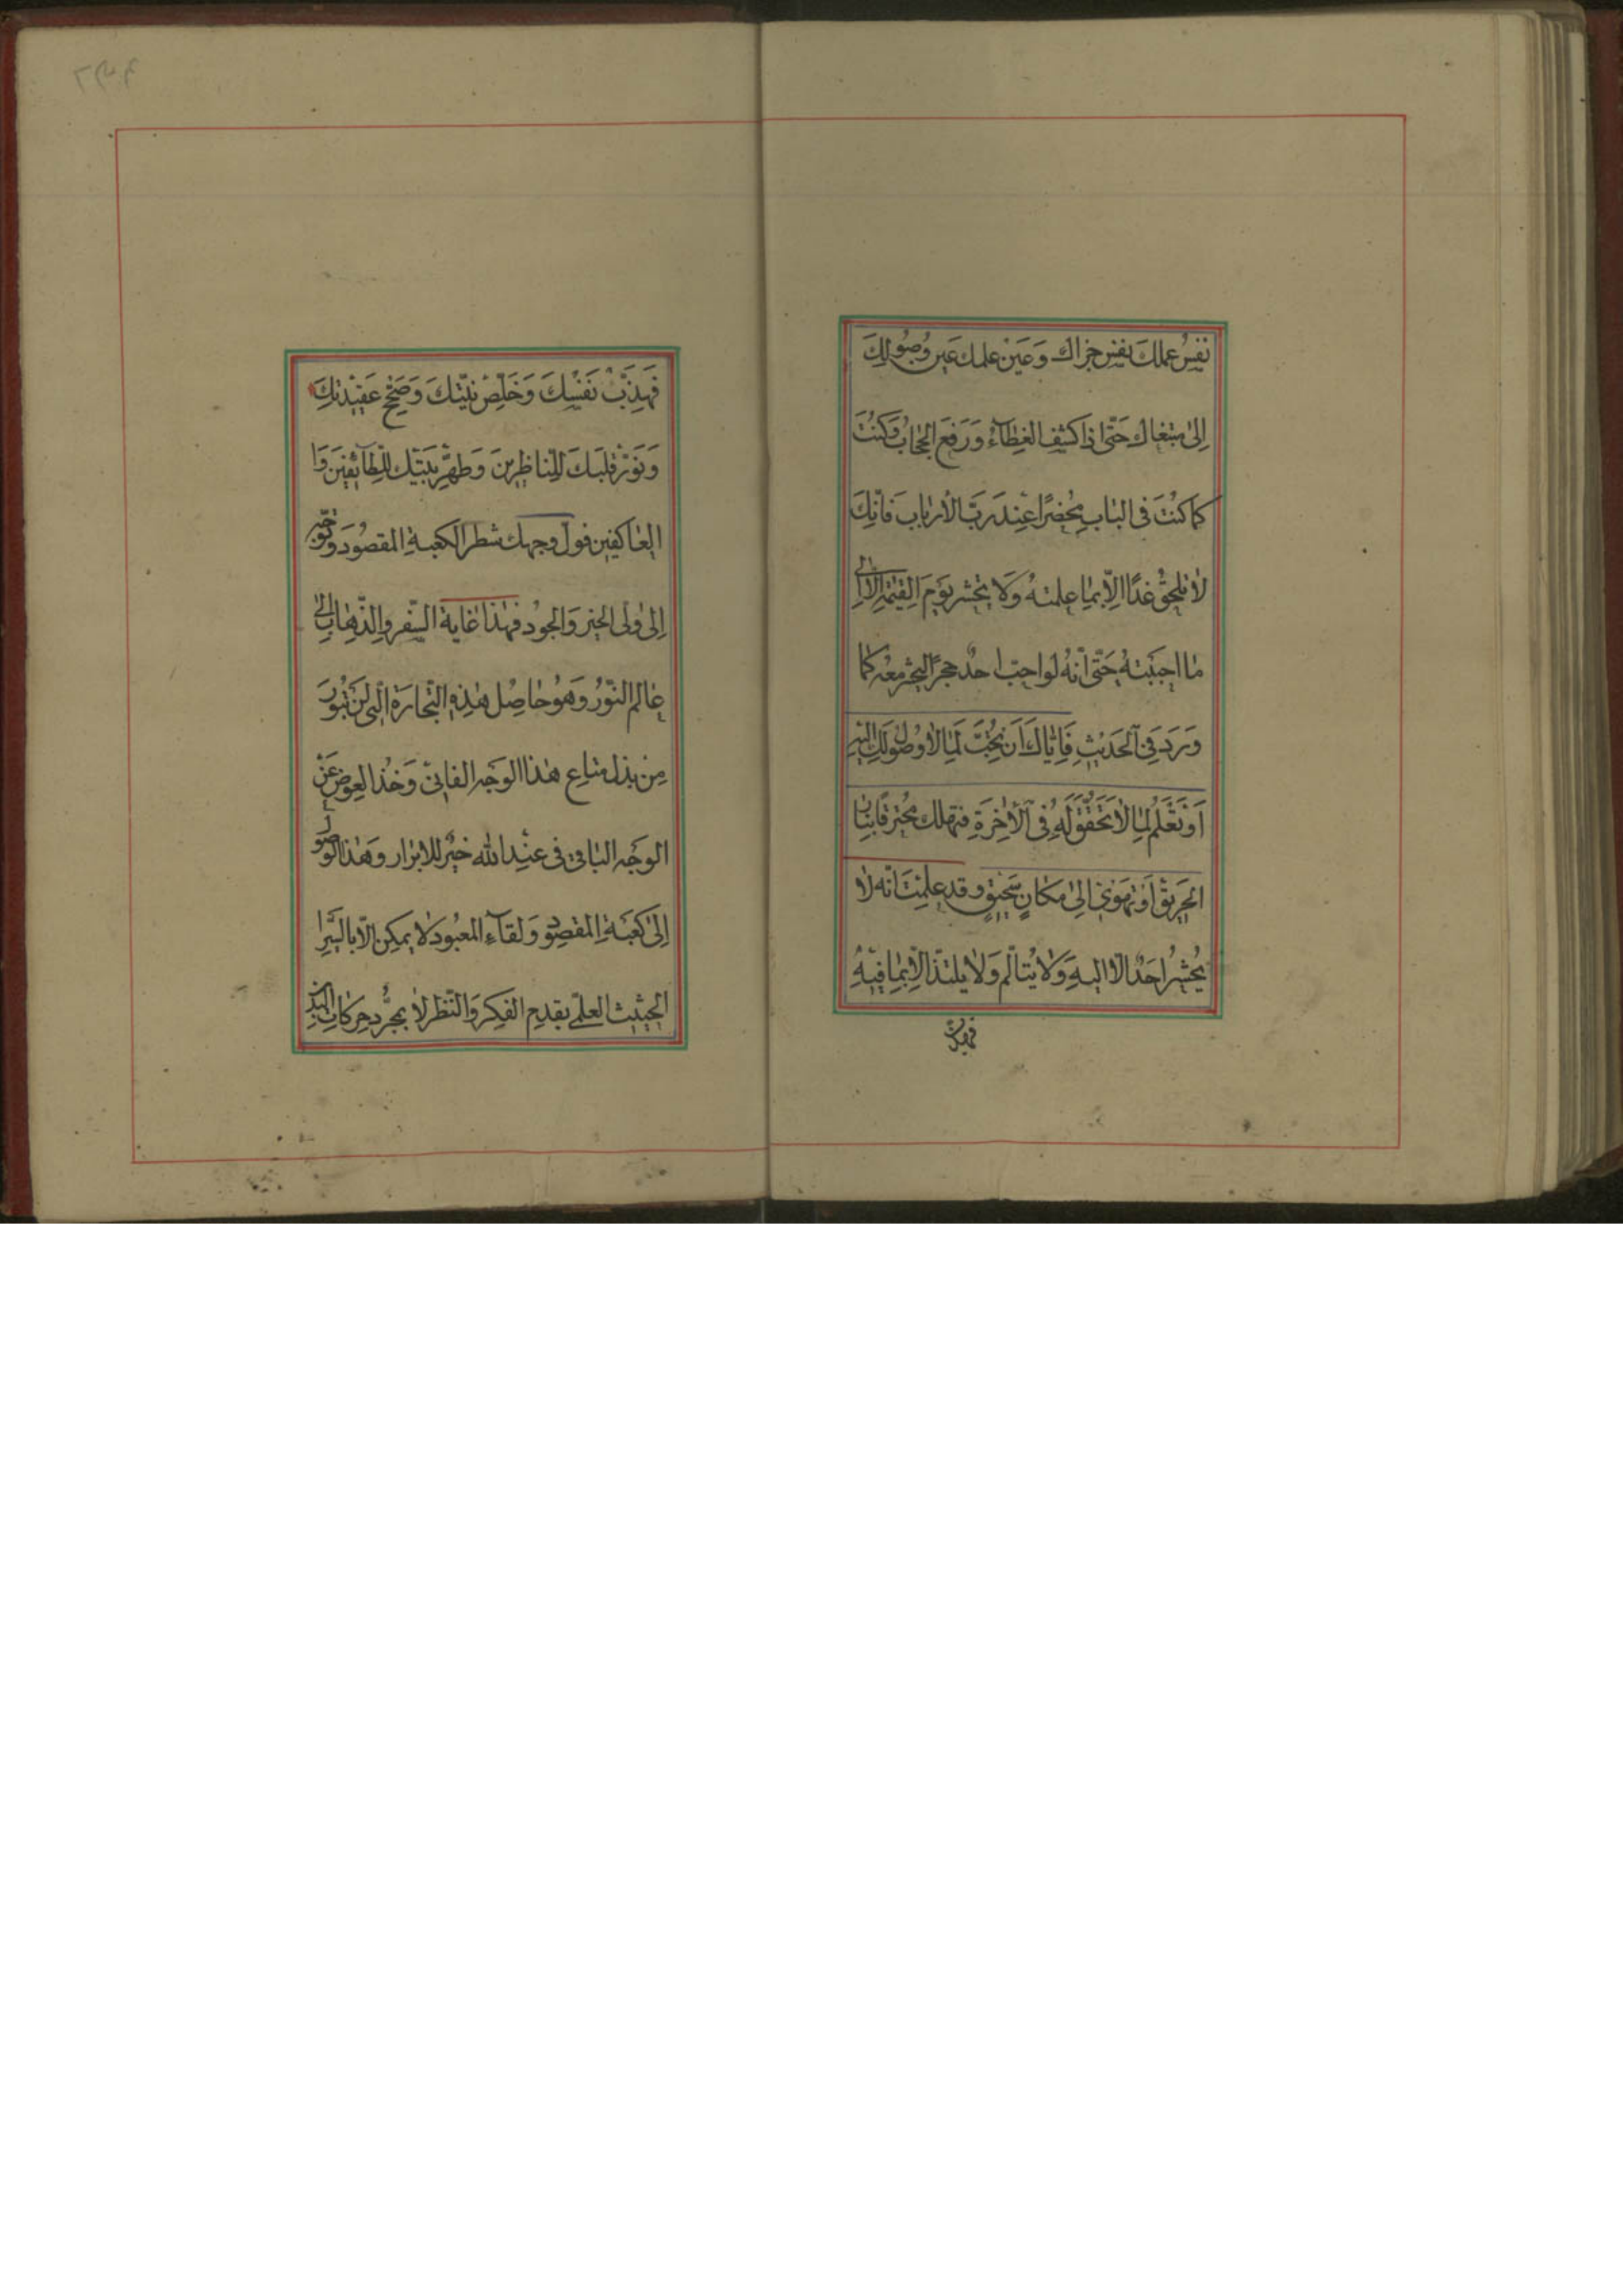 نَفْسُ عملكَ نفس جزاك وَعَيْن علمك عَين وُصُولِكَ
اِلى مبتغاك حَتّى اذا كشف الغِطآءُ وَرَفع الحجابُ وَكُنْتَ
كما كُنْتَ فى الباب مُحْضَرًا عِند رَبّ الأرباب فَانّكَ
لا تلحقُ غدًا اِلّا بما علمتهُ وَلا تحشر يَوْم القِيٰمة اِلّا الى
ما احببتهُ حَتّى انّهُ لو احبّ احدٌ حجرًا لَيحْشر معهُ كما
وَرَدَ فِى الحَديثِ فَاِيّاكَ اَن تُحِبَّ لما لا وُصُولَ لكَ اليْهِ
اَوْ تَعْلَمُ لما لا تَحَقُّقَ لَهُ فِى الآخِرَةِ فتهلك محُترقًا بنار
الحَريق اَوْ تَهْوى اِلىٰ مَكانٍ سَحيقٍ وقد علِمْتَ انّه لا
يُحْشَرُ احَدٌ الّا اليهِ وَلا يُتألّم وَلا يلتذّ اِلّا بما فيهِ
فهذّب
فَهَذِّبْ نَفْسَكَ وَخَلِّصْ نيّتكَ وَصَحّح عَقيدَتكَ
وَنَوّرْ قلبَكَ للنّاظِرينَ وَطهّرْ بَيتك للطّآئفينَ وَا
العاكفين فولّ وجهك شطر الكعبة المقصُود وَتوجّه
اِلى ولىّ الخير وَالجُود فهٰذا غاية السّفر والذّهاب اِلىٰ
عالم النّوُر وَهوُ حاصِل هٰذِهِ التّجارَة الّتى لَن تبوُرَ
مِن بذل متاع هٰذا الوَجه الفانى وَخُذ العِوض عَنْ
الوَجه الباقى فى عنْد الله خَيْر للابرار وَهٰذا الوصُول
اِلىٰ كعَبة المقصود وَلقآءِ المعبُود لا يمكن الّا بالسّيْر
الحثيث العلمىّ بقدم الفكر وَالنّظر لا بمجُرّد حركات البدن